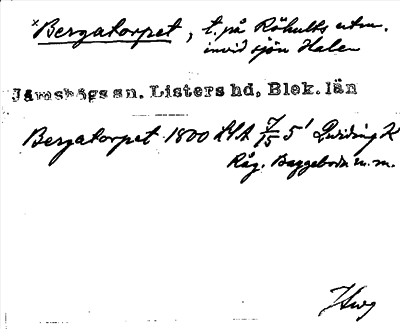 ×Bergatorpet, t. på Röhults utm.
invid sjön Halen
Jämshögs sn. Listers hd, Blek. län
Bergatorpet 1800 LSA 7/5 5' Qviding K
Råg. Baggeboda m.m.